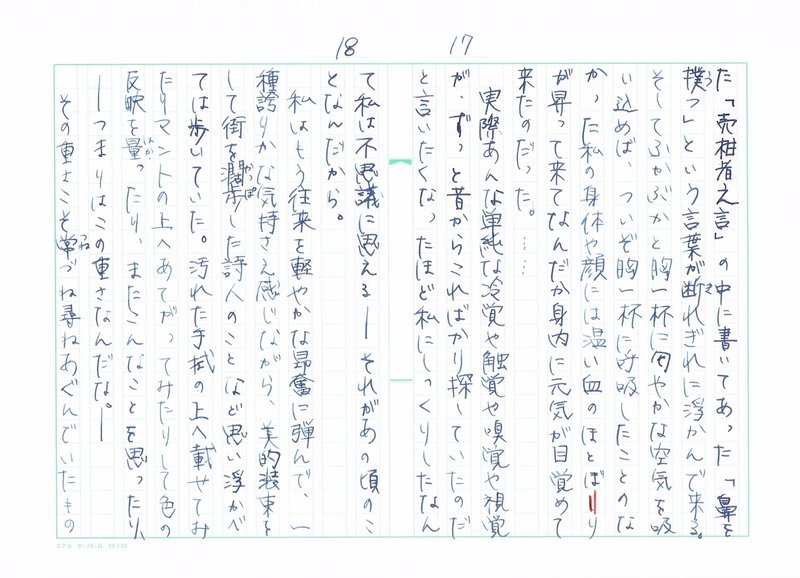 17
た「売柑者之言」の中に書いてあった「鼻を
撲つ」という言葉が断れぎれに浮かんで来る。
そしてふかぶかと胸一杯に匂やかな空気を吸
い込めば、ついぞ胸一杯に呼吸したことのな
かった私の身体や顔には温い血のほとぼり
が昇って来てなんだか身内に元気が目覚めて
来たのだった。……
実際あんな単純な冷覚や触覚や嗅覚や視覚
が、ずっと昔からこればかり探していたのだ
と言いたくなったほど私にしっくりしたなん
18
て私は不思議に思える—それがあの頃のこ
となんだから。
私はもう往来を軽やかな昂奮に弾んで、一
種誇りかな気持さえ感じながら、美的装束を
して街を濶歩した詩人のことなど思い浮かべ
ては歩いていた。汚れた手拭の上へ載せてみ
たりマントの上へあてがってみたりして色の
反映を量ったり、またこんなことを思ったり、
—つまりはこの重さなんだな。—
その重さこそ常づね尋ねあぐんでいたもの
コクヨ ケ-70 20×20